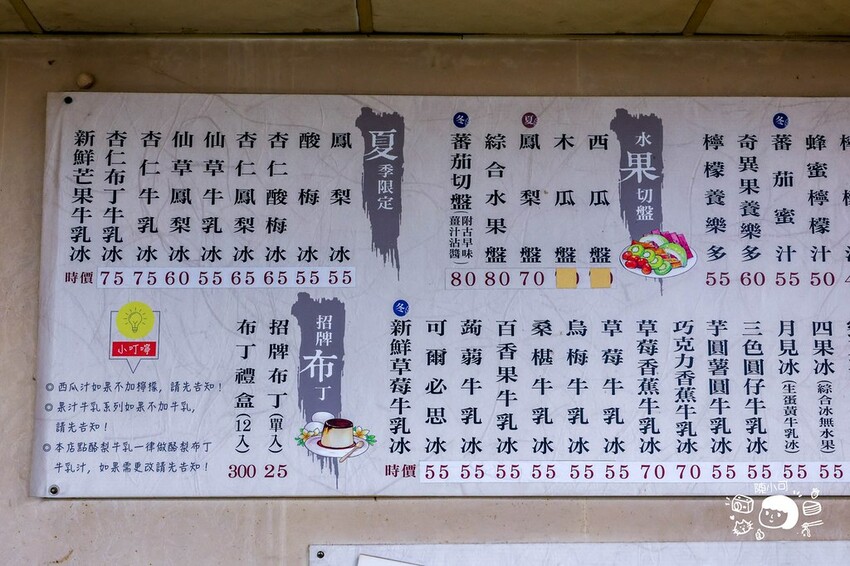 蜂蜜檸檬汁 50
冬 蕃茄蜜汁 55
奇異果養樂多 60
檸檬養樂多 55
水果切盤
西瓜盤
木瓜盤
夏 鳳梨盤 70
綜合水果盤 80
冬 蕃茄切盤(附古早味薑汁沾醬) 80
夏季限定
鳳梨冰 55
酸梅冰 55
杏仁酸梅冰 65
杏仁鳳梨冰 65
仙草牛乳冰 55
仙草鳳梨冰 60
杏仁牛乳冰 75
杏仁布丁牛乳冰 75
新鮮芒果牛乳冰 時價
四果冰(綜合冰無水果) 55
月見冰(生蛋黃牛乳冰) 55
三色圓仔牛乳冰 55
芋圓薯圓牛乳冰 55
巧克力香蕉牛乳冰 70
草莓香蕉牛乳冰 70
草莓牛乳冰 55
烏梅牛乳冰 55
桑椹牛乳冰 55
百香果牛乳冰 55
蒟蒻牛乳冰 55
可爾必思冰 55
冬 新鮮草莓牛乳冰 時價
招牌布丁
招牌布丁(單入) 25
布丁禮盒(12入) 300
小叮嚀
◎西瓜汁如果不加檸檬，請先告知！
◎果汁牛乳系列如果不加牛乳，
請先告知！
◎本店點酪梨牛乳一律做酪梨布丁
牛乳汁，如果需更改請先告知！
陳小可